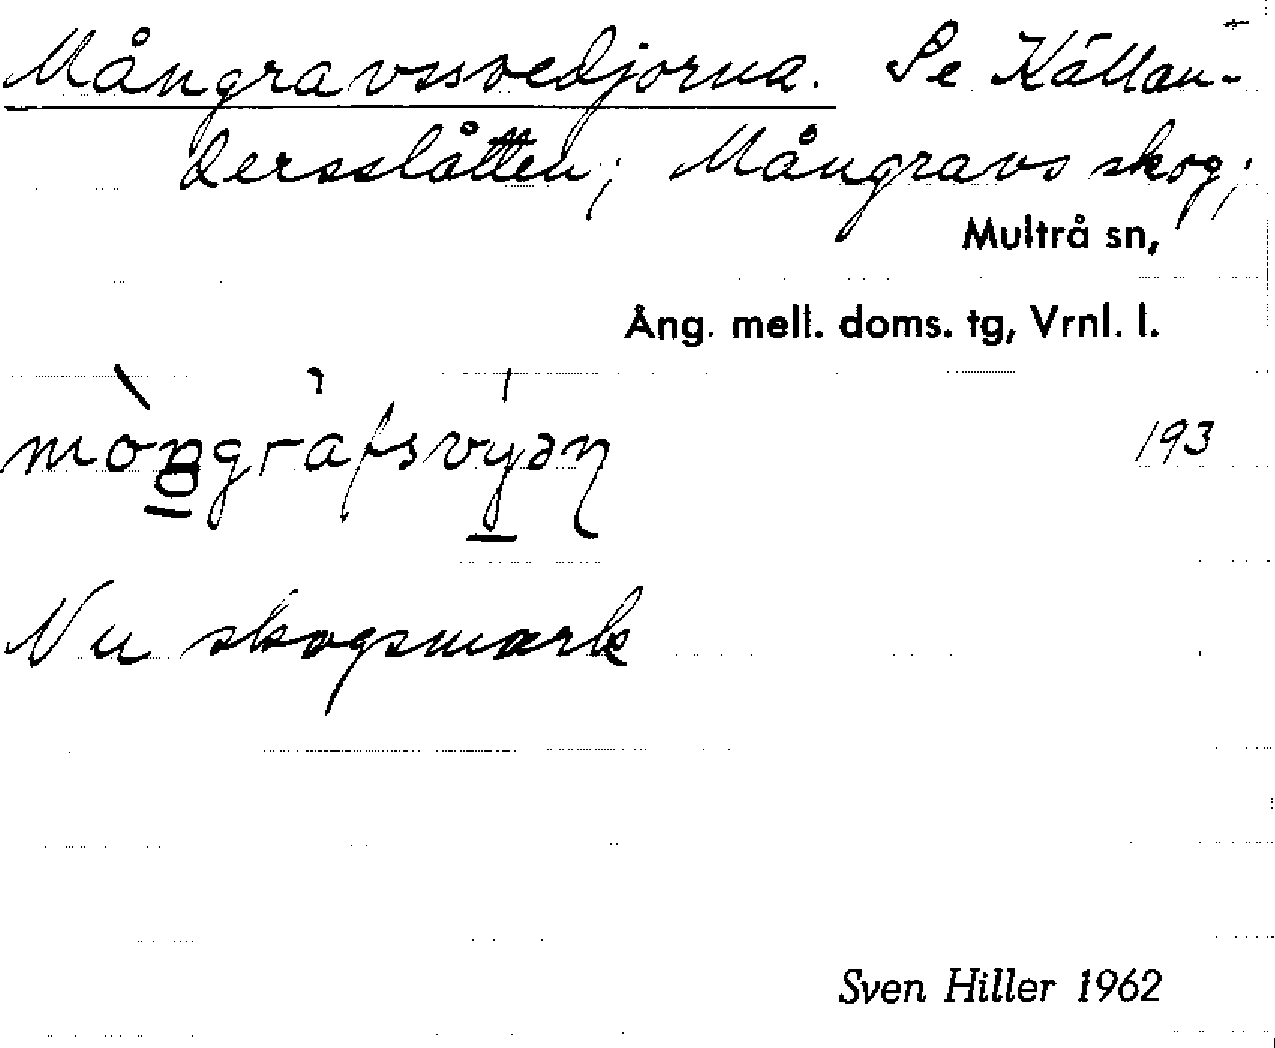 Mångravssvedjorna. Se Källan-
dersslåtten; Mångravsskog;
Multrå sn,
Ång. mell. doms. tg, Vrnl. l.
193
Nu skogsmark
Sven Hiller 1962